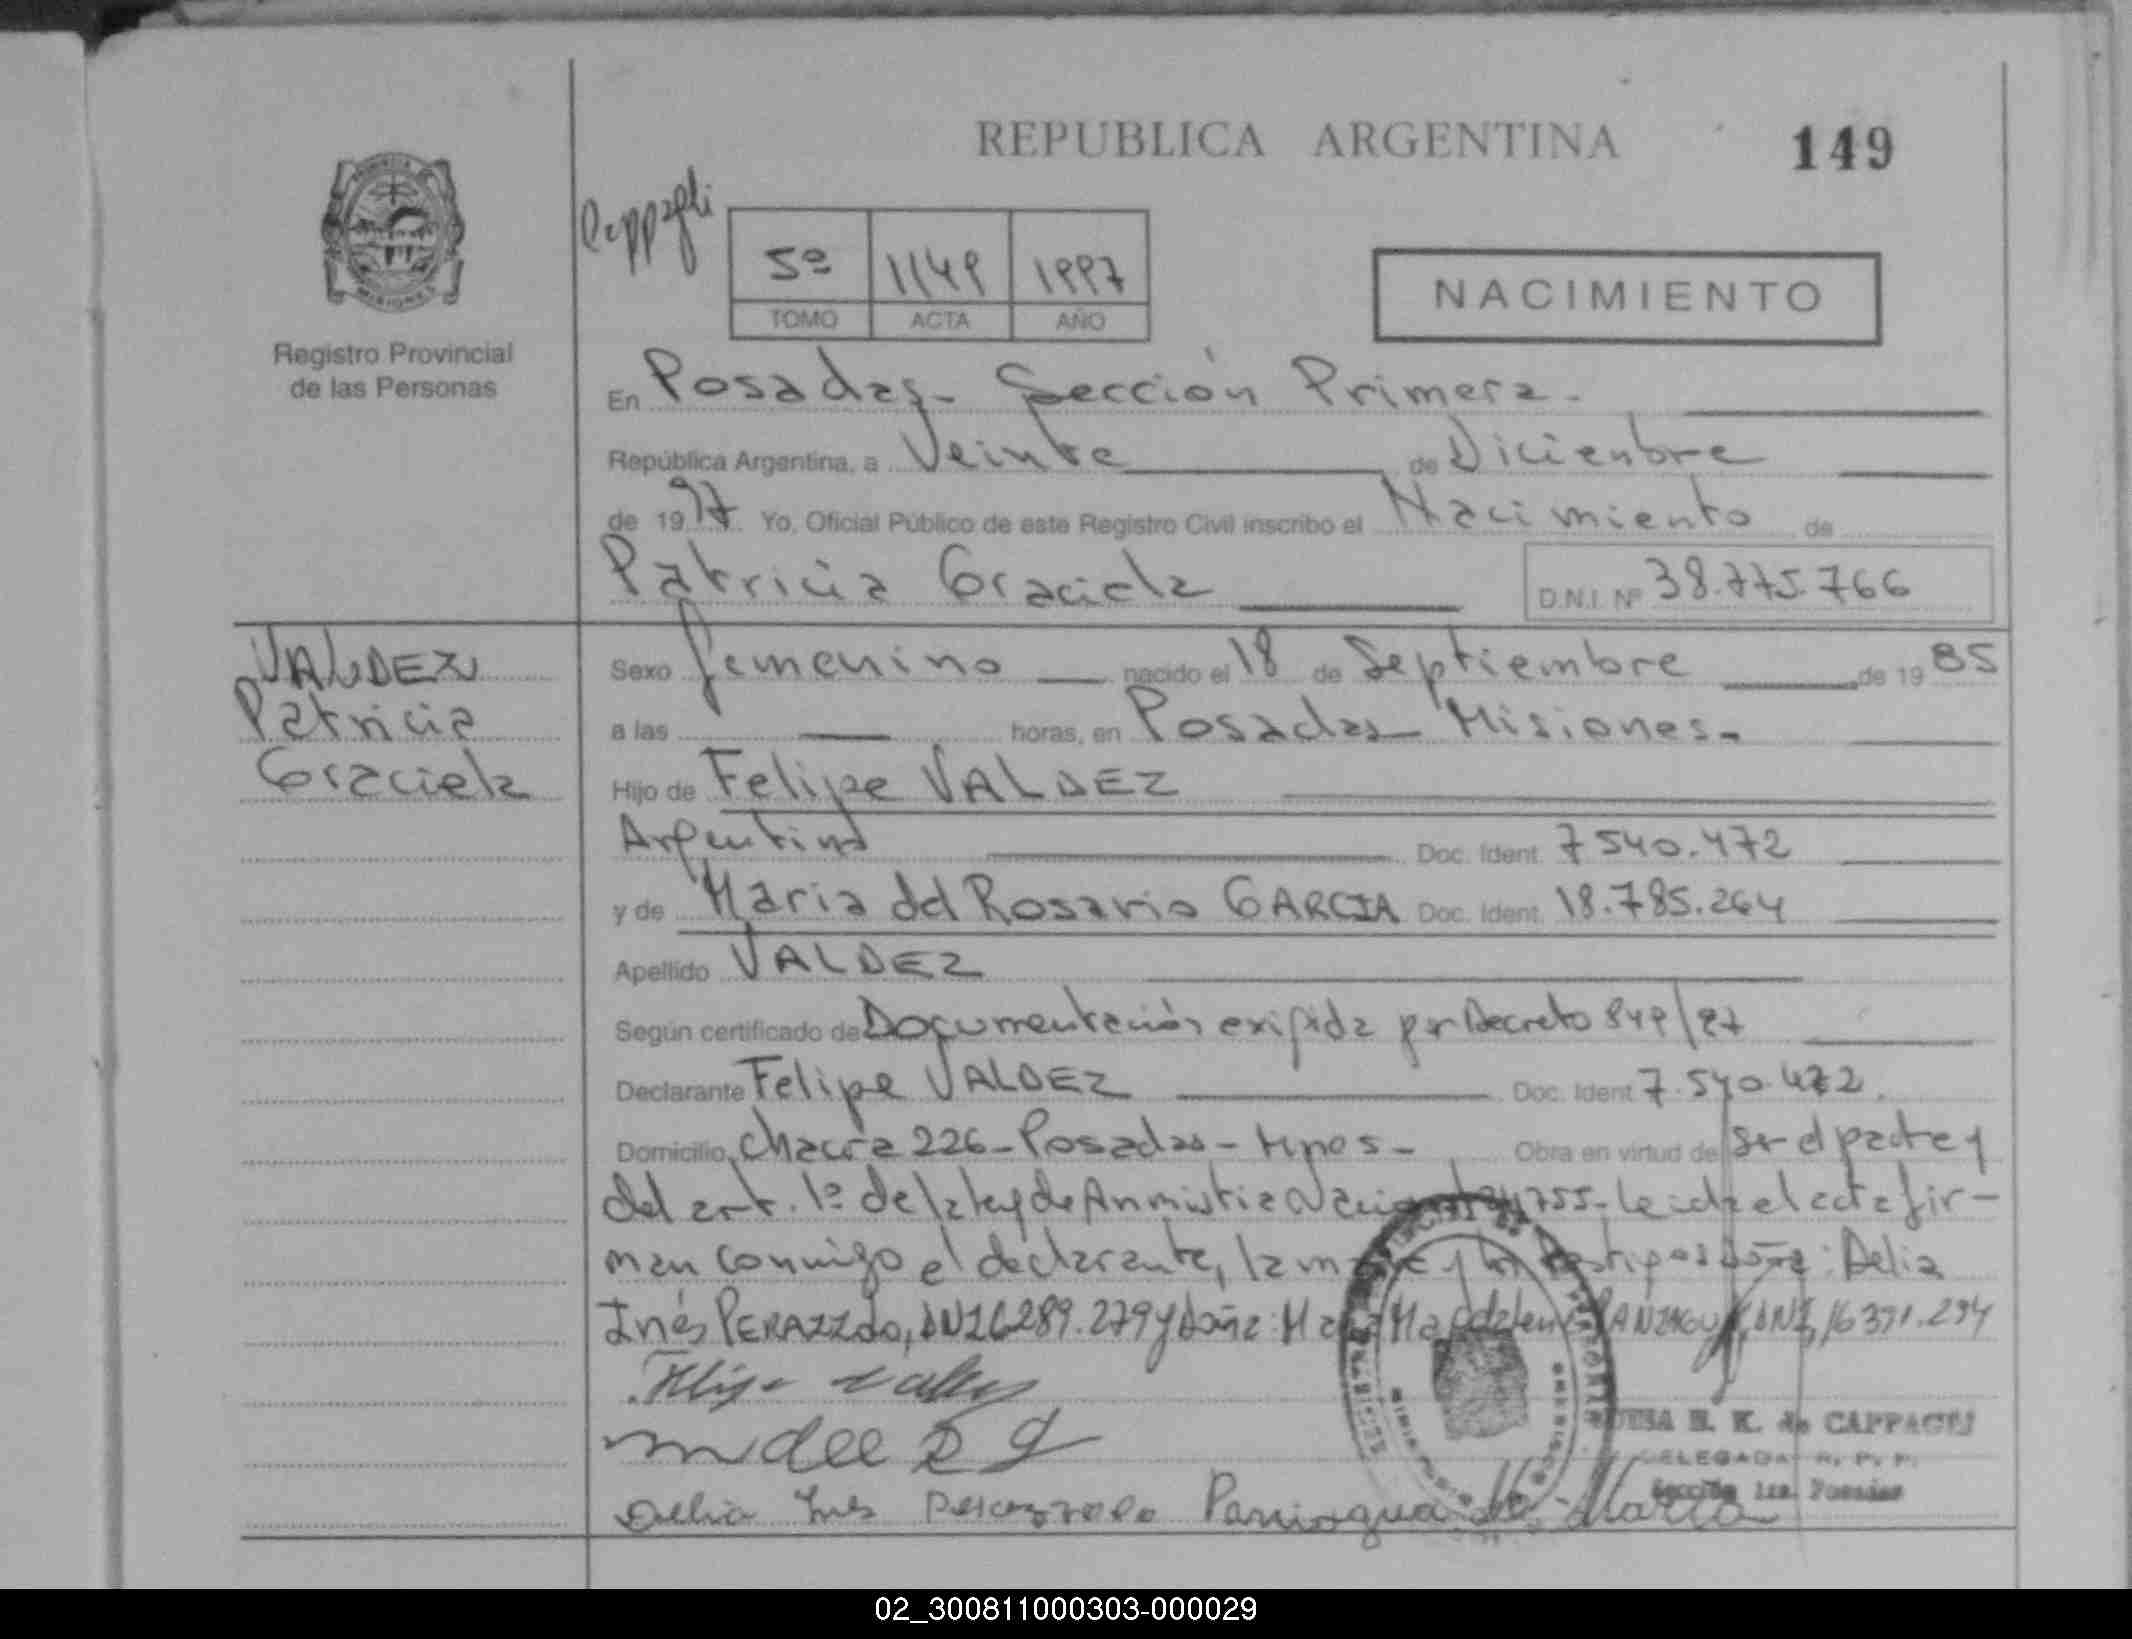 REPUBLICA ARGENTINA
149
PROVINCIA DE
MISIONES
Registro Provincial
de las Personas
Cappagli
5º 1149 1997
TOMO ACTA AÑO
NACIMIENTO
En Posadas - Sección Primera -
República Argentina, a Veinte de Diciembre
de 1997. Yo, Oficial Público de este Registro Civil inscribo el Nacimiento de
Patricia Graciela
D.N.I. Nº 38.775.766
VALDEZ
Patricia
Graciela
Sexo femenino nacido el 18 de Septiembre de 1985
a las horas, en Posadas - Misiones -
Hijo de Felipe VALDEZ
Argentino Doc. Ident. 7540.472
y de Maria del Rosario GARCIA Doc. Ident. 18.785.264
Apellido VALDEZ
Según certificado de Documentación exigida por Decreto 849/97
Declarante Felipe VALDEZ Doc. Ident. 7.540.472.
Domicilio Chacra 226 - Posadas - Mnes - Obra en virtud de ser el padre y
del art. 1º de la ley de Anmistia 24755 - Leida el acta fir-
man conmigo el declarante, la y testigos doña: Delia
Inés PERAZZOLO, DNI 6289.279 y doña: DNI 16391.294
DELEGADA R. P. P.
Sección 1ra. Posadas
02_300811000303-000029